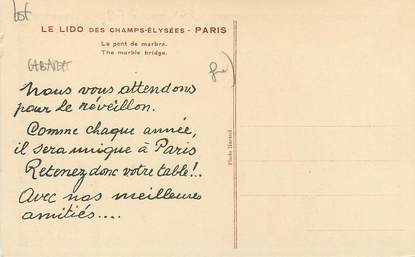 lot
LE LIDO DES CHAMPS-ÉLYSÉES - PARIS
Le pont de marbre.
The marble bridge.
CABARET
Nous vous attendons
pour le réveillon.
Comme chaque année,
il sera unique à Paris
Retenez donc votre table!..
Avec nos meilleures
amitiés....
Photo Harand